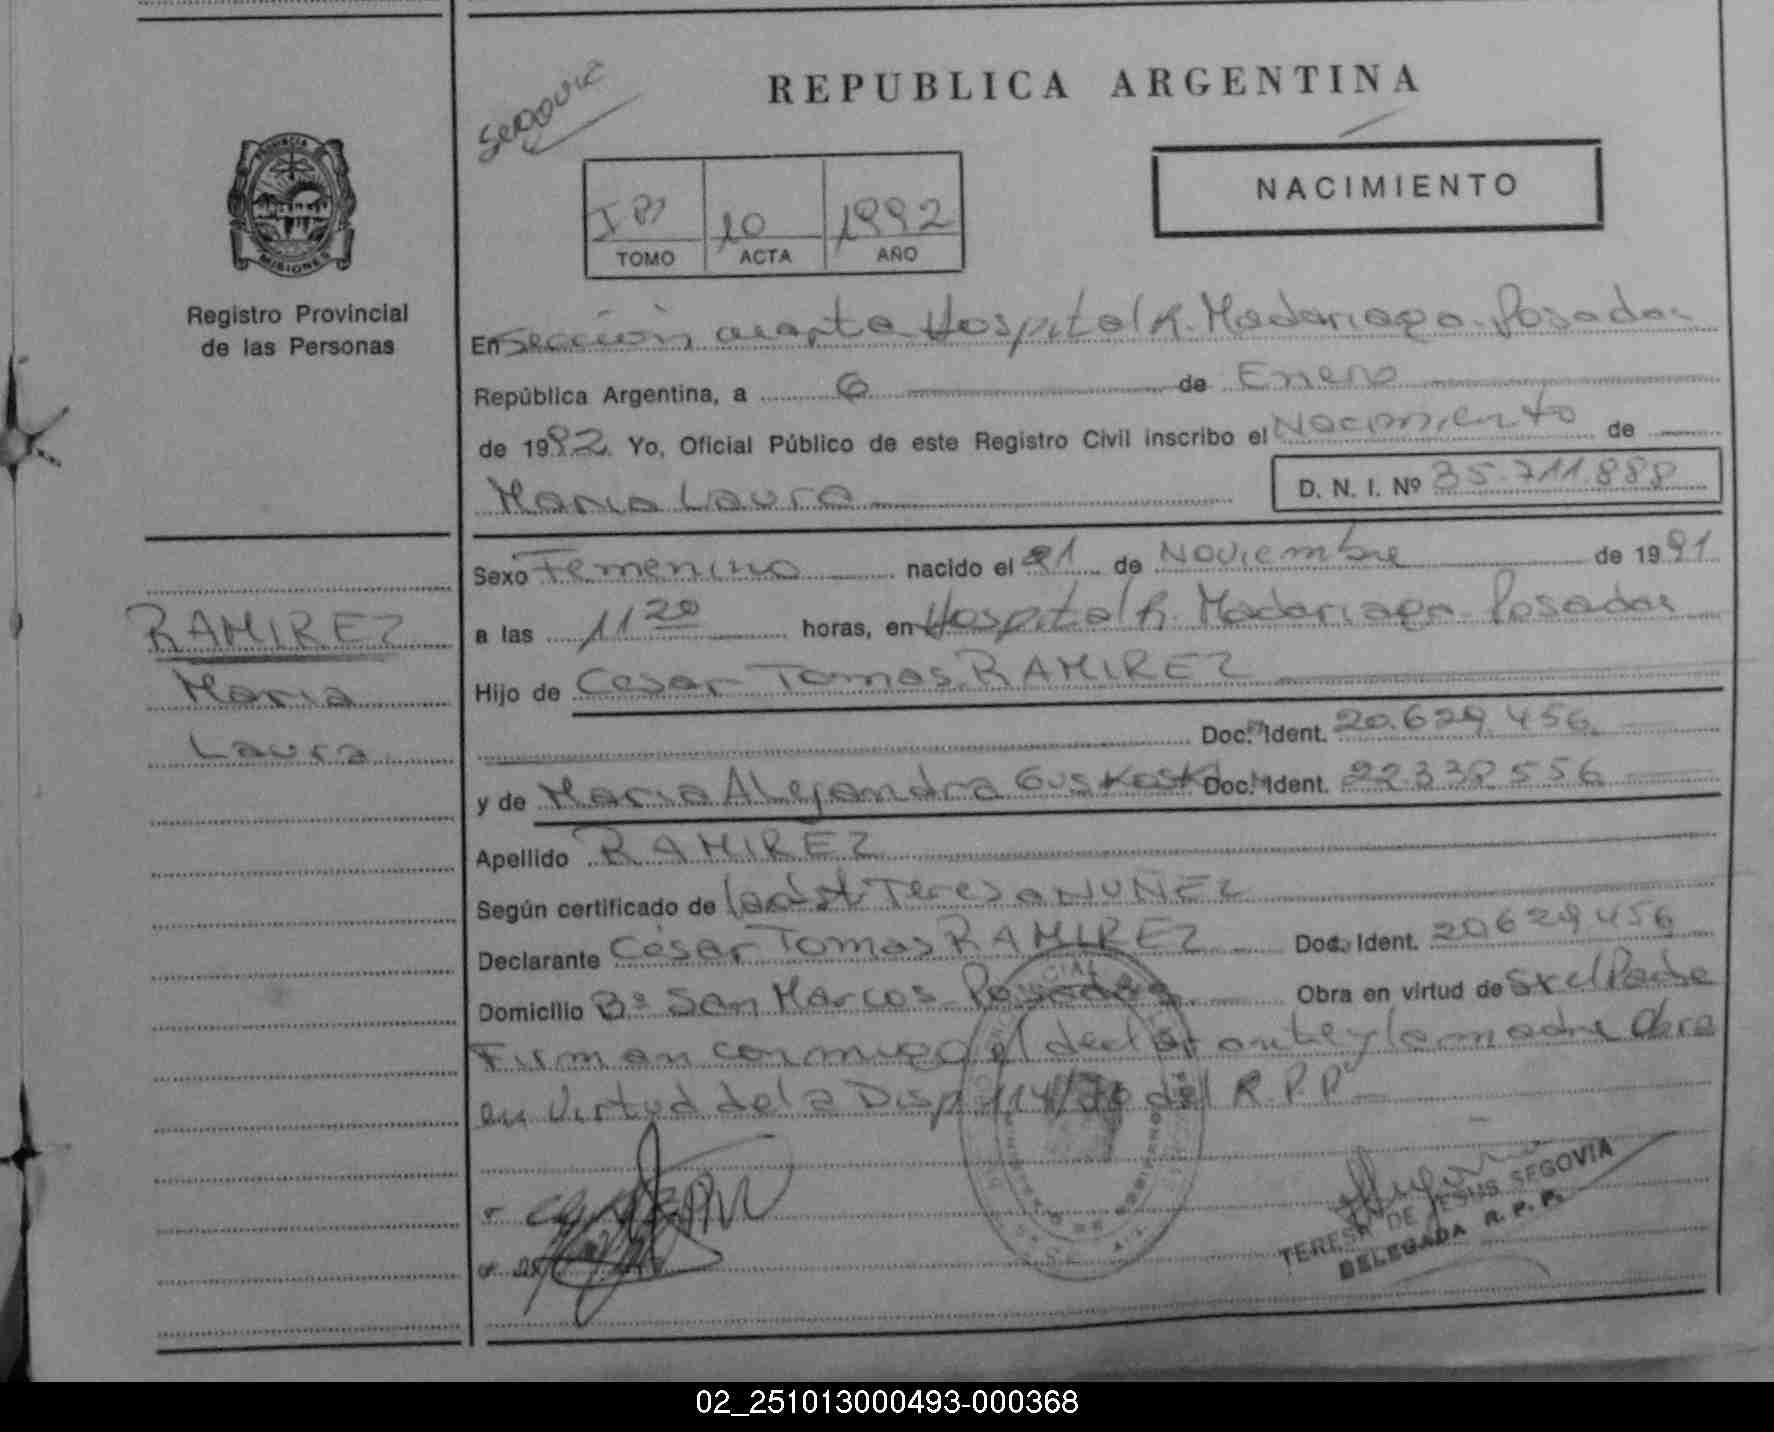 REPUBLICA ARGENTINA
SEGOVIA
PROVINCIA
MISIONES
Registro Provincial
de las Personas
NACIMIENTO
10 1992
TOMO ACTA AÑO
En Sección cuarta Hospital R. Madariaga - Posadas
República Argentina, a 6 de Enero
de 1992. Yo, Oficial Público de este Registro Civil inscribo el Nacimiento de
Maria Laura D. N. I. Nº 35.711.888
Sexo Femenino nacido el 21 de Noviembre de 1991
a las 11 20 horas, en Hospital R. Madariaga - Posadas
RAMIREZ
Maria
Laura
Hijo de Cesar Tomas RAMIREZ
Doc. Ident. 20.629.456
y de Maria Alejandra Doc. Ident. 22.338.556
Apellido RAMIREZ
Según certificado de Teresa NUÑEZ
Declarante César Tomas RAMIREZ Doc. Ident. 20629456
Domicilio Bº San Marcos - Posadas Obra en virtud de Sr el Padre
Firman conmigo el declarante y la madre Obra
en Virtud de la Disp 114/ del R.P.P.
TERESA DE JESUS SEGOVIA
DELEGADA R. P. P.
02_251013000493-000368